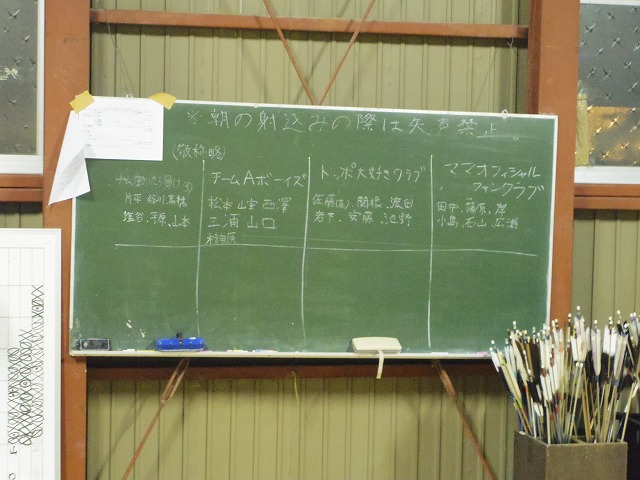 ※朝の射込みの際は矢声禁止。
(敬称略)
片平 谷川 高橋
塩谷、平原、山本
チームAボーイズ
松本 山宝 西澤
三浦 山口
トッポ大好きクラブ
佐藤(圭)、関根、渡田
岩下、安藤、池野
ママオフィシャル
ファンクラブ
田中、藤原、岸
小島、石山、広瀬